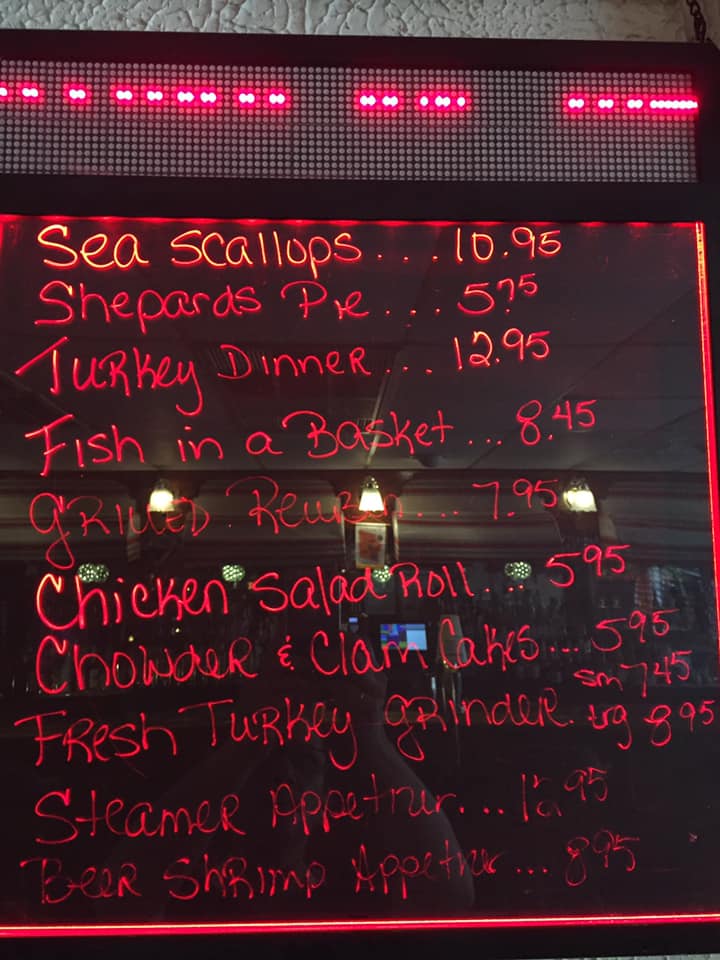 Sea Scallops....10.95
Shepards Pie....5.75
Turkey Dinner...12.95
Fish in a Basket...8.45
Grilled Reuben...7.95
Chicken Salad Roll...5.95
Chowder & Clam Cakes...5.95
sm 7.45
Fresh Turkey grinder. lrg 8.95
Steamer Appetizer...12.95
Beer Shrimp Appetizer...8.95